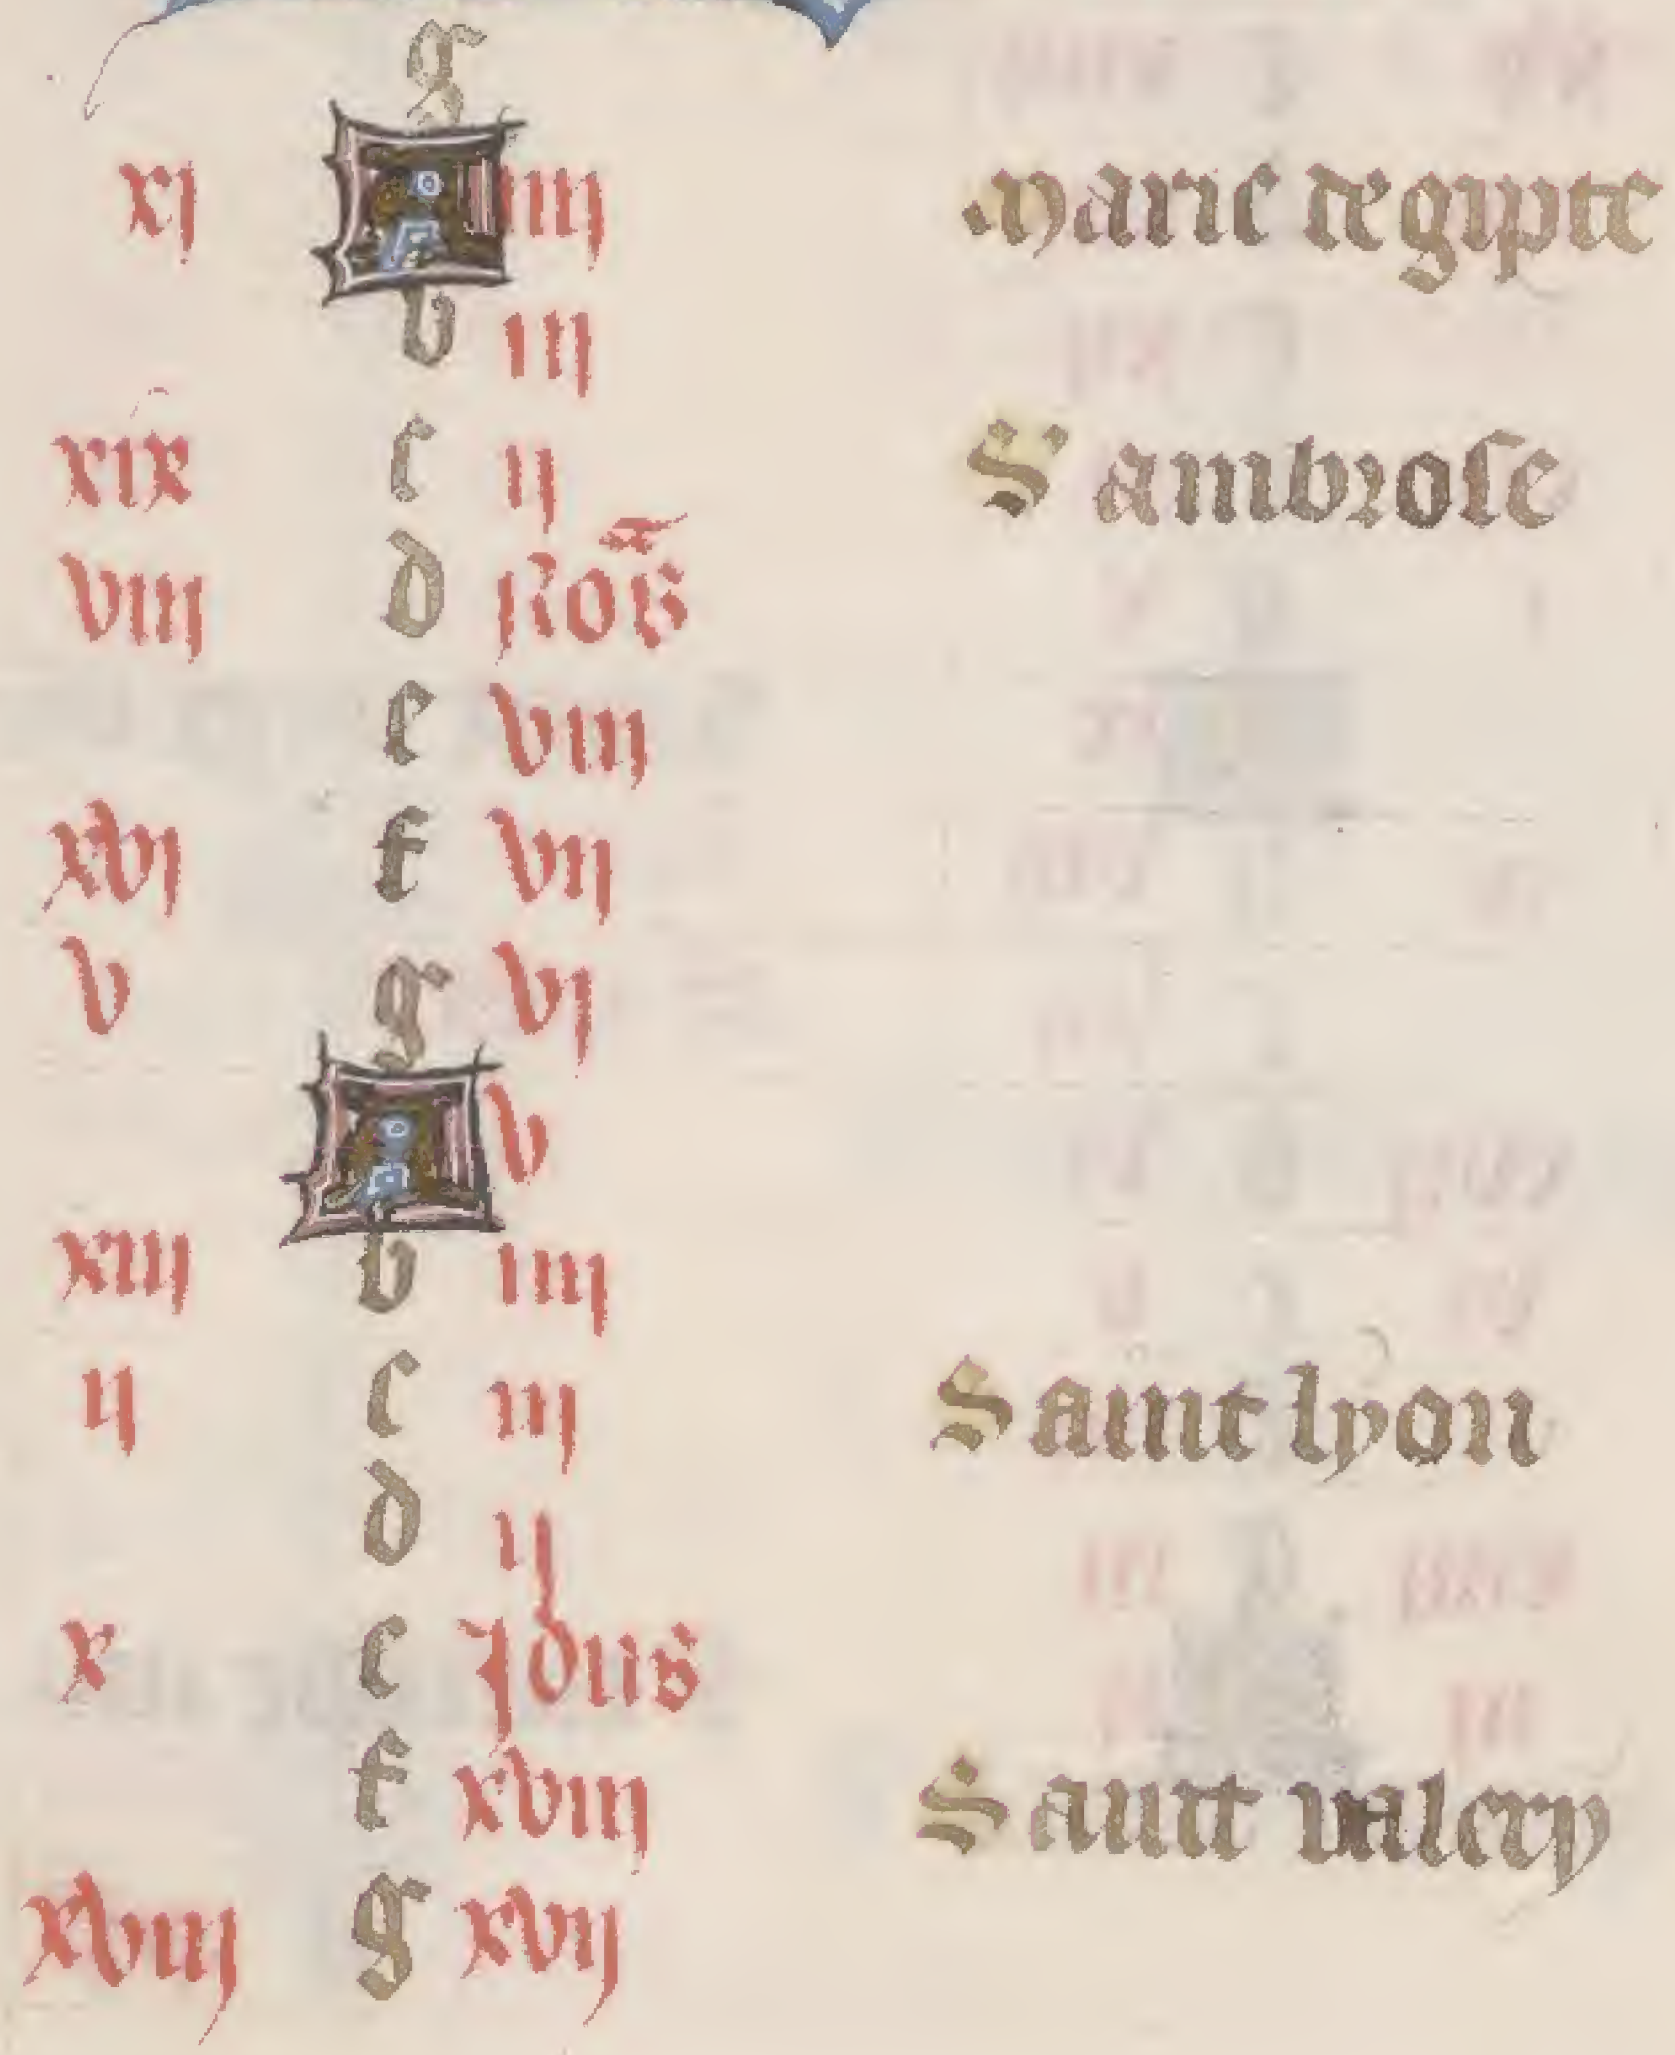 g
xj a iiij Marie degipte
b iij
xix c ij S ambrose
viij d Noās
e viij
xvj f vij
v g vj
a v
xiij b iiij
ij c iij Saint lyon
d ij
x e Jdus
f xviij Saint valery
xviij g xvij